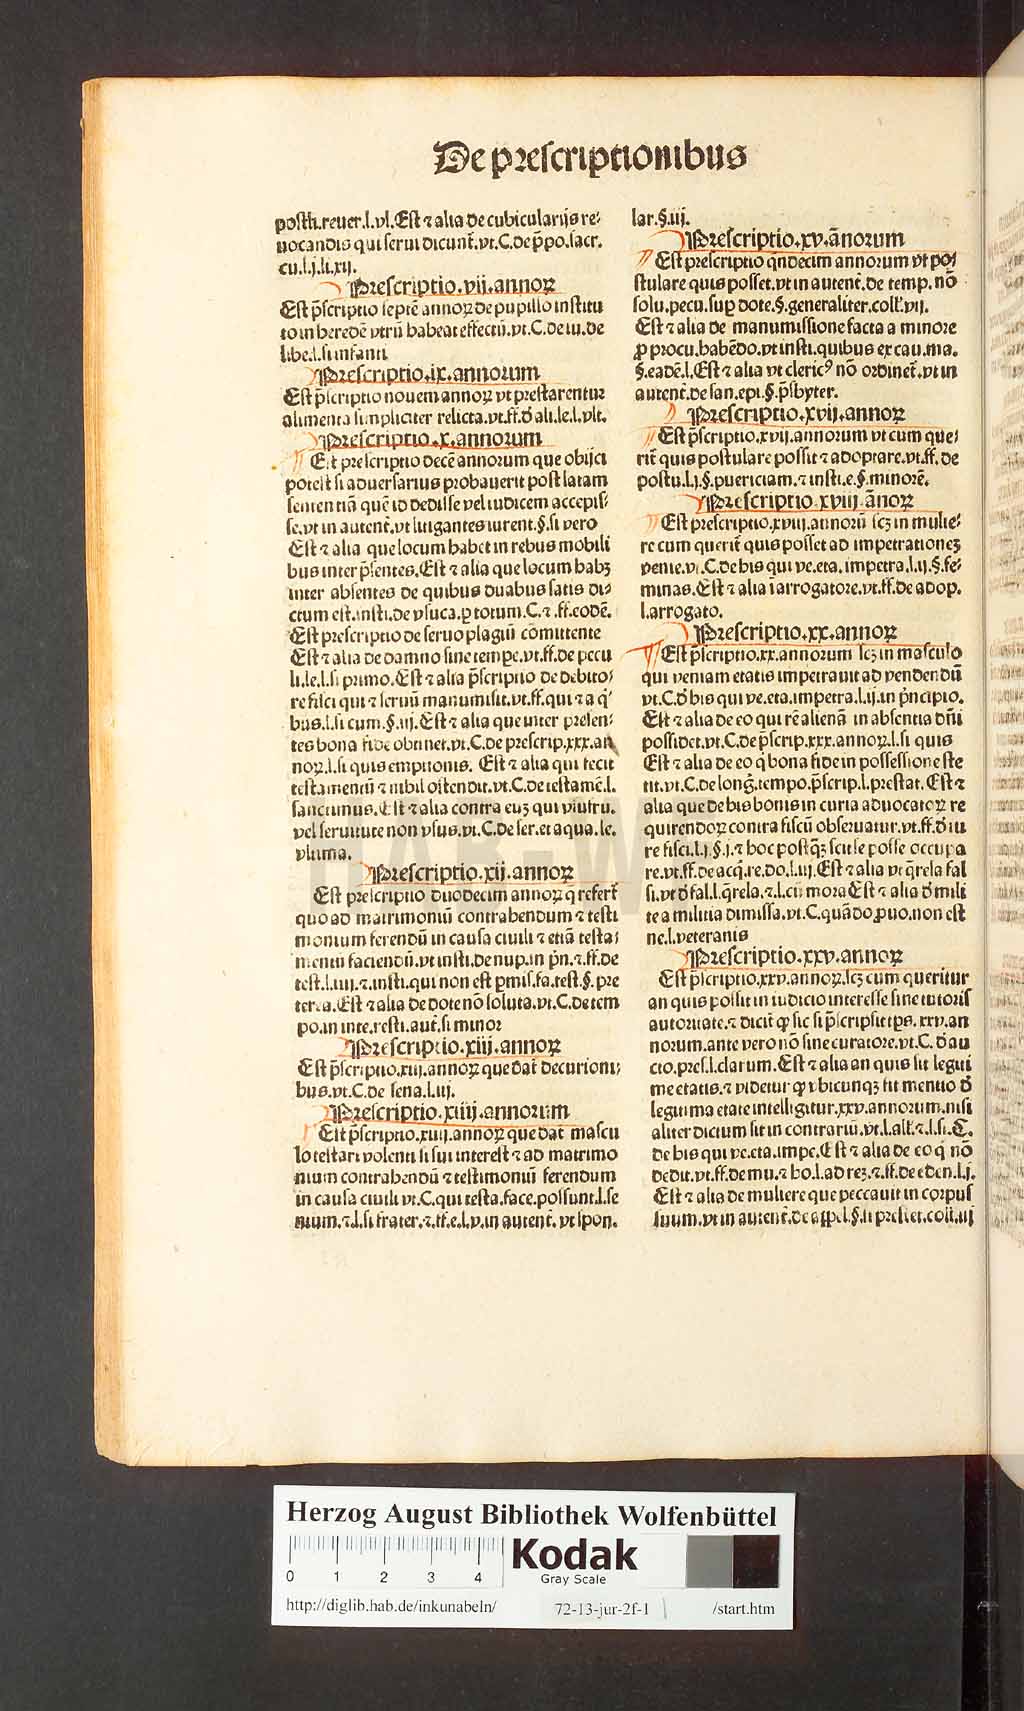 De prescriptionibus
posth.reuer.l.vl.Est ⁊ alia de cubicularijs re-
uocandis qui serui dicunt̃.vt.C.de p̃po.sacr.
cu.l.j.li.xij.
Prescriptio.vij.annoꝝ
Est p̃scriptio septẽ annoꝝ de pupillo institu
to in heredẽ vtrũ habeat effectũ.vt.C.de iu.de
libe.l.si infanti
Prescriptio.ix.annorum
Est p̃scriptio nouem annoꝝ vt prestarentur
alimenta simpliciter relicta.vt.ff.ď ali.le.l.vlt.
Prescriptio.x.annorum
Est prescriptio decẽ annorum que obijci
potest si aduersarius probauerit post latam
sententiã quẽ id dedisse vel iudicem accepis-
se.vt in autent̃.vt litigantes iurent.§.si vero
Est ⁊ alia que locum habet in rebus mobili
bus inter p̃sentes.Est ⁊ alia que locum habꝫ
inter absentes de quibus duabus satis di-
ctum est.insti.de vsuca.ꝑ totum.C.⁊.ff.eodẽ.
Est prescriptio de seruo plagiũ cõmittente
Est ⁊ alia de damno sine tempe.vt.ff.de pecu
li.le.l.si primo.Est ⁊ alia p̃scriptio de debito-
re fisci qui ⁊ seruũ manumisit.vt.ff.qui ⁊ a q'
bus.l.si cum.§.iij.Est ⁊ alia que inter presen-
tes bona fide obtinet.vt.C.de prescrip.xxx.an
noꝝ.l.si quis emptionis. Est ⁊ alia qui fecit
testamentũ ⁊ nihil ostendit.vt.C.de testamẽ.l.
sancimus.Est ⁊ alia contra euꝫ qui vsufru.
vel seruitute non vsus.vt.C.de ser.et aqua.le.
vltima.
Prescriptio.xij.annoꝝ
Est prescriptio duodecim annoꝝ q refert̃
quo ad matrimoniũ contrahendum ⁊ testi
monium ferendũ in causa ciuili ⁊ etiã testa-
mentũ faciendũ.vt insti.de nup.in pñ.⁊.ff.de
test.l.iiij.⁊.insti.qui non est ꝑmis.fa.test.§.pre
terea.Est ⁊ alia de dote nõ soluta.vt.C.de tem
po.in inte.resti.aut̃.si minor
Prescriptio.xiij.annoꝝ
Est p̃scriptio.xiij.annoꝝ que dat̃ decurioni-
bus.vt.C.de sena.l.iij.
Prescriptio.xiiij.annorum
Est p̃scriptio.xiiij.annoꝝ que dat̃ mascu
lo testari volenti si sui interest ⁊ ad matrimo
nium contrahendũ ⁊ testimoniũ ferendum
in causa ciuili vt.C.qui testa.face.possunt.l.se
nium.⁊.l.si frater.⁊.ff.e.l.v.in autent̃. vt spon.
lar.§.iij.
Prescriptio.xv.ãnorum
Est prescriptio q̃ndecim annorum vt po-
stulare quis posset.vt in autent̃.de temp. nõ
solu.pecu.suꝑ dote.§.generaliter.coll'.vij.
Est ⁊ alia de manumissione facta a minore
ꝓ procu.habẽdo.vt insti.quibus ex cau.ma.
§.eadẽ.l.Est ⁊ alia vt clericꝰ nõ ordinet̃.vt in
autent̃.de san.epi.§.p̃sbyter.
Prescriptio.xvij.annoꝝ
Est p̃scriptio.xvij.annorum vt cum que-
rit̃ quis postulare possit ⁊ adoptare.vt.ff. de
postu.l.j.§.puericiam.⁊ insti.e.§.minorẽ.
Prescriptio.xviij.ãnoꝝ
Est prescriptio.xviij.annorũ scꝫ in mulie-
re cum querit̃ quis posset ad impetrationeꝫ
venie.vt.C.de his qui ve.eta. impetra.l.ij.§.fe-
minas.Est ⁊ alia ĩ arrogatore.vt.ff.de adop.
l.arrogato.
Prescriptio.xx.annoꝝ
Est p̃scriptio.xx.annorum scꝫ in masculo
qui veniam etatis impetrauit ad vendendũ
vt.C.ď his qui ve.eta.impetra.l.ij.in p̃ncipio.
Est ⁊ alia de eo qui rẽ alienã in absentia dñi
possidet.vt.C.de p̃scrip.xxx.annoꝝ.l.si quis
Est ⁊ alia de eo q̇ bona fide in possessione ste
tit.vt.C.de long̃.tempo.p̃scrip.l.prestat. Est ⁊
alia que de his bonis in curia aduocatoꝝ re
quirendoꝝ contra fiscũ obseruatur.vt.ff.ď iu
re fisci.l.j.§.j.⁊ hoc postqꝫ scisse posse occupa
re.vt.ff.de acq̃.re.do.l.iij.Est ⁊ alia vt q̃rela fal
si.vt ď fal.l.q̃rela.⁊.l.cũ mora Est ⁊ alia ď mili
te a militia dimissa.vt.C.quãdo ꝓuo.non est
ne.l.veteranis
Prescriptio.xxv.annoꝝ
Est p̃scriptio.xxv.annoꝝ.scꝫ cum queritur
an quis possit in iudicio interesse sine tutoris
autoritate.⁊ dicit̃ ꝙ sic si p̃scripsit tp̃s. xxv.an
norum.ante vero nõ sine curatore.vt.C. ď au
cto.pres.l.clarum.Est ⁊ alia an quis sit legiti
me etatis.⁊ videtur ꝙ vbicunqꝫ fit mentio ď
legitima etate intelligitur.xxv.annorum.nisi
aliter dictum sit in contrariũ.vt.l.all'.⁊.l.si.C.
de his qui ve.eta.impe.Est ⁊ alia de eo q̇ nõ
dedit.vt.ff.de mu.⁊ ho.l.ad reꝫ.⁊.ff.de eden.l.j.
Est ⁊ alia de muliere que peccauit in corpus
suum.vt in autent̃.de appel.§.si presbet.coll.iij
HAB-W
Herzog August Bibliothek Wolfenbüttel
0 1 2 3 4
Kodak
Gray Scale
http://diglib.hab.de/inkunabeln/ 72-13-jur-2f-1 /start.htm